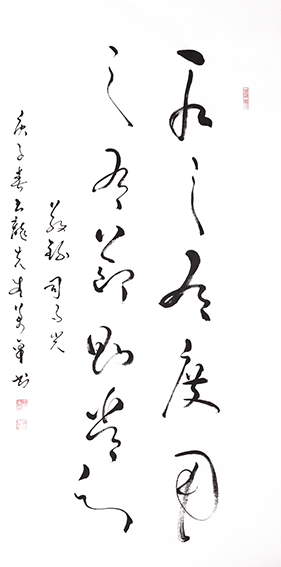 取之有度用
之有節則常足
敬錄司馬光
庚子春 龍先 書